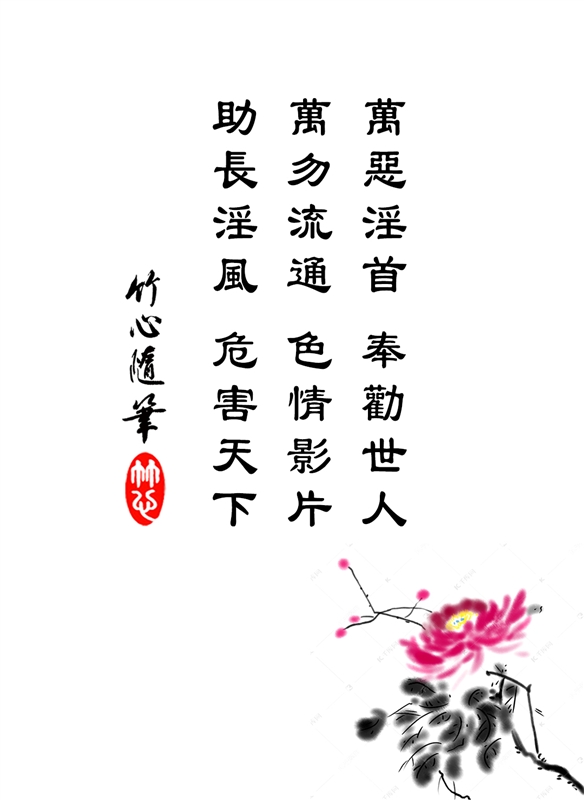 萬惡淫首 奉勸世人
萬勿流通 色情影片
助長淫風 危害天下
竹心隨筆
竹心